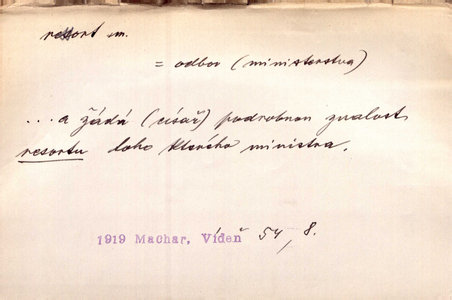 resort m.
= odbor (ministerstva)
... a žádá (císař) podrobnou znalost
resortu toho kterého ministra.
1919 Machar, Vídeň 54, 8.